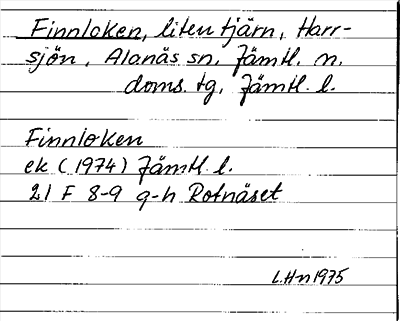 Finnloken, liten tjärn, Harr-
sjön, Alanäs sn, Jämtl. n.
doms. tg, Jämtl. l.
Finnloken
ek (1974) Jämtl. l.
21 F 8-9 g-h Rotnäset
L.Hn 1975